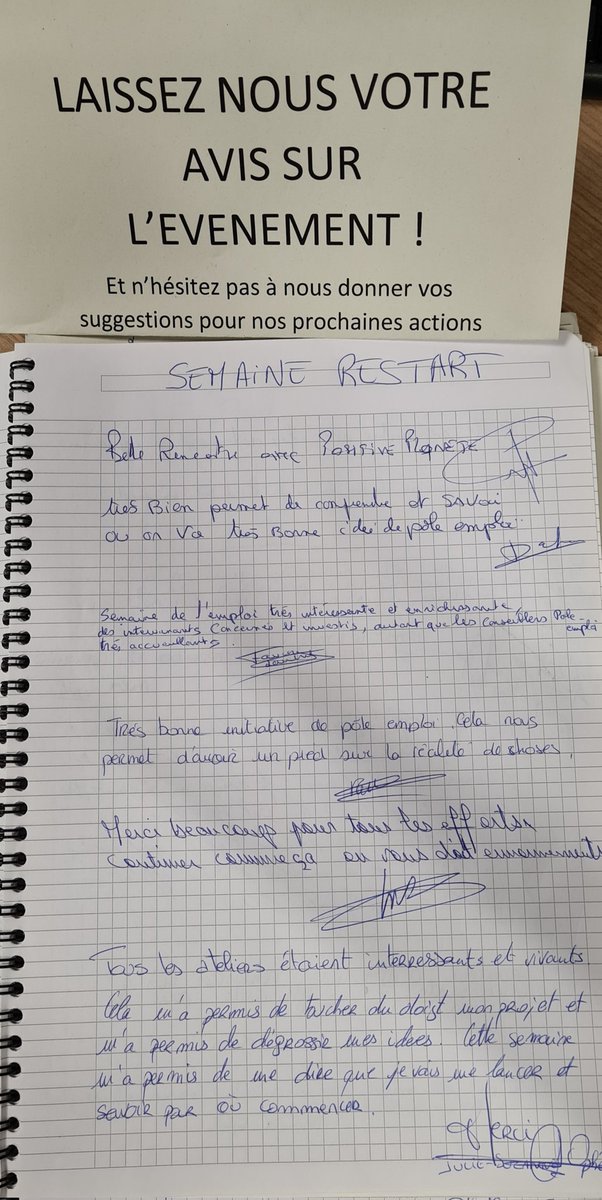 LAISSEZ NOUS VOTRE
AVIS SUR
L'EVENEMENT !
Et n'hésitez pas à nous donner vos
suggestions pour nos prochaines actions
SEMAINE RESTART
Belle Rencontre avec POSITIVE PLANETE
très Bien permet de comprendre et SAVOir
ou on Va très Bonne idée de pôle emploi.
Semaine de l'emploi très intéressante et enrichissante,
des intervenants concernés et investis, autant que les conseillers Pole-
emploi
très accueillants.
Très bonne initiative de pôle emploi. Cela nous
permet d'avoir un pied sur la réalité de choses.
Merci beaucoup pour tous les efforts,
continuer comme ça on vous doit
Tous les ateliers étaient interressants et vivants.
Cela m'a permis de toucher du doigt mon projet et
m'a permis de dégrossie mes idées. Cette semaine
m'a permis de me dire que je vais me lancer et
savoir par où commencer.
Merci
JULIE